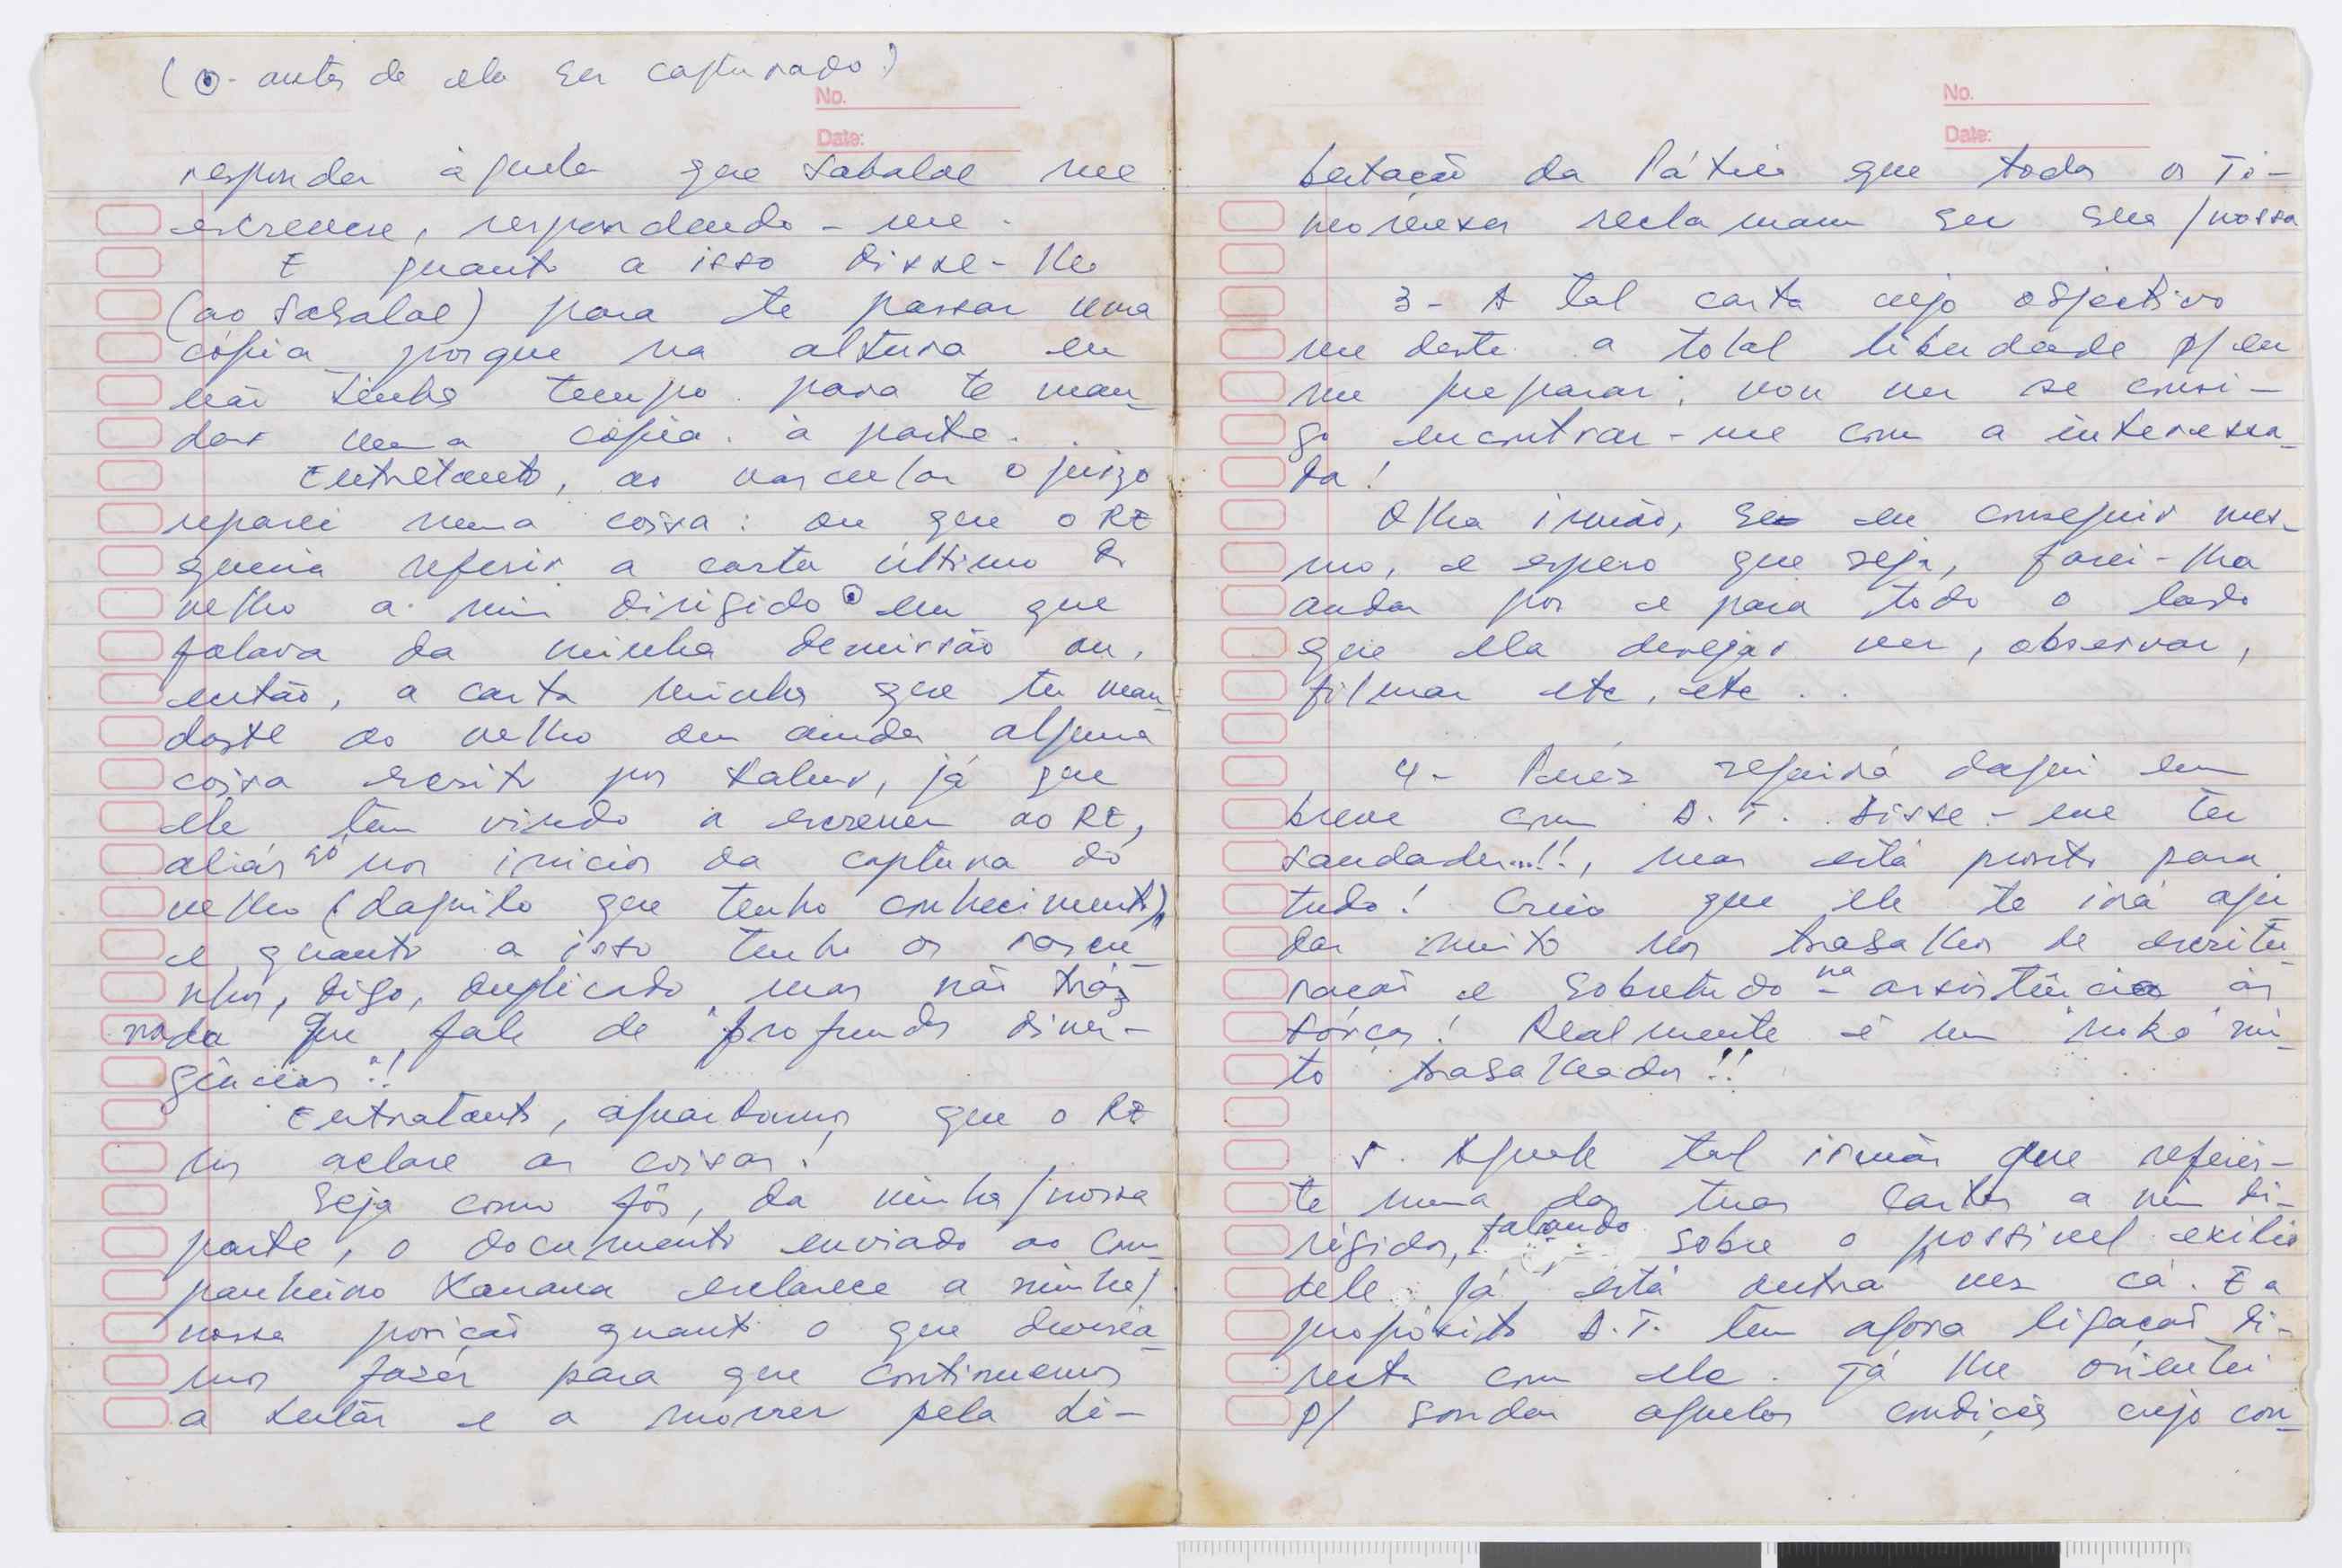 (⊙- antes de ele ser capturado!)
No.
Date:
responder àquela que Sabalae me
escrevera, respondendo-me.
E quanto a isso disse-lhe
(ao Sabalae) para te passar uma
cópia porque na altura eu
não tinha tempo para te man-
dar uma cópia à parte.
Entretanto, ao vascular o juizo
reparei numa coisa: ou que o RE
queria referir a carta último do
velho a mim dirigido ⊙ em que
falava da minha demissão ou,
então, a carta minha que tu man-
daste ao velho ou ainda alguma
coisa escrito por Saber, já que
ele tem vindo a escrever ao RE,
aliás só nos inicios da captura do
velho (daquilo que tenho conhecimento),
e quanto a isso tenho os rascu-
nhos, digo, duplicado mas não tráz
nada que fale de "profundas diver-
gências"!
Entretanto, aguardamos que o RE
nos aclare as coisas!
Seja como fôr, da minha/nossa
parte, o documento enviado ao Com-
panheiro Xanana esclarece a minha/
nossa posição quanto o que devería-
mos fazer para que continuemos
a lutar e a morrer pela Li-
No.
Date:
bertação da Pátria que todos os Ti-
morenses reclamam ser sua/nossa
3- A tal carta cujo objectivo
me deste a total liberdade p/ eu
me preparar; vou ver se consi-
go encontrar-me com a interessa-
da!
Olha irmão, se eu conseguir mes-
mo, e espero que seja, farei-lha
andar por e para todo o lado
que ela desejar ver, observar,
filmar etc, etc..
4- Pérez seguirá daqui em
breve com D.T. Disse-me ter
saudades...!!, mas está pronto para
tudo! Creio que ele te irá aju
dar muito nos trabalhos de escritu-
ração e sobretudo na assistência às
forças! Realmente é um "nako" mui-
to trabalhador!!
5. Aquele tal irmão que referis-
te numa das tuas cartas a mim di-
rigidos, falando sobre o possivel exilio
dele já está outra vez cá. E a
propósito D.T. tem agora ligação di-
recta com ele. Já lhe orientei
p/ sondar aquelas condições cujo con-